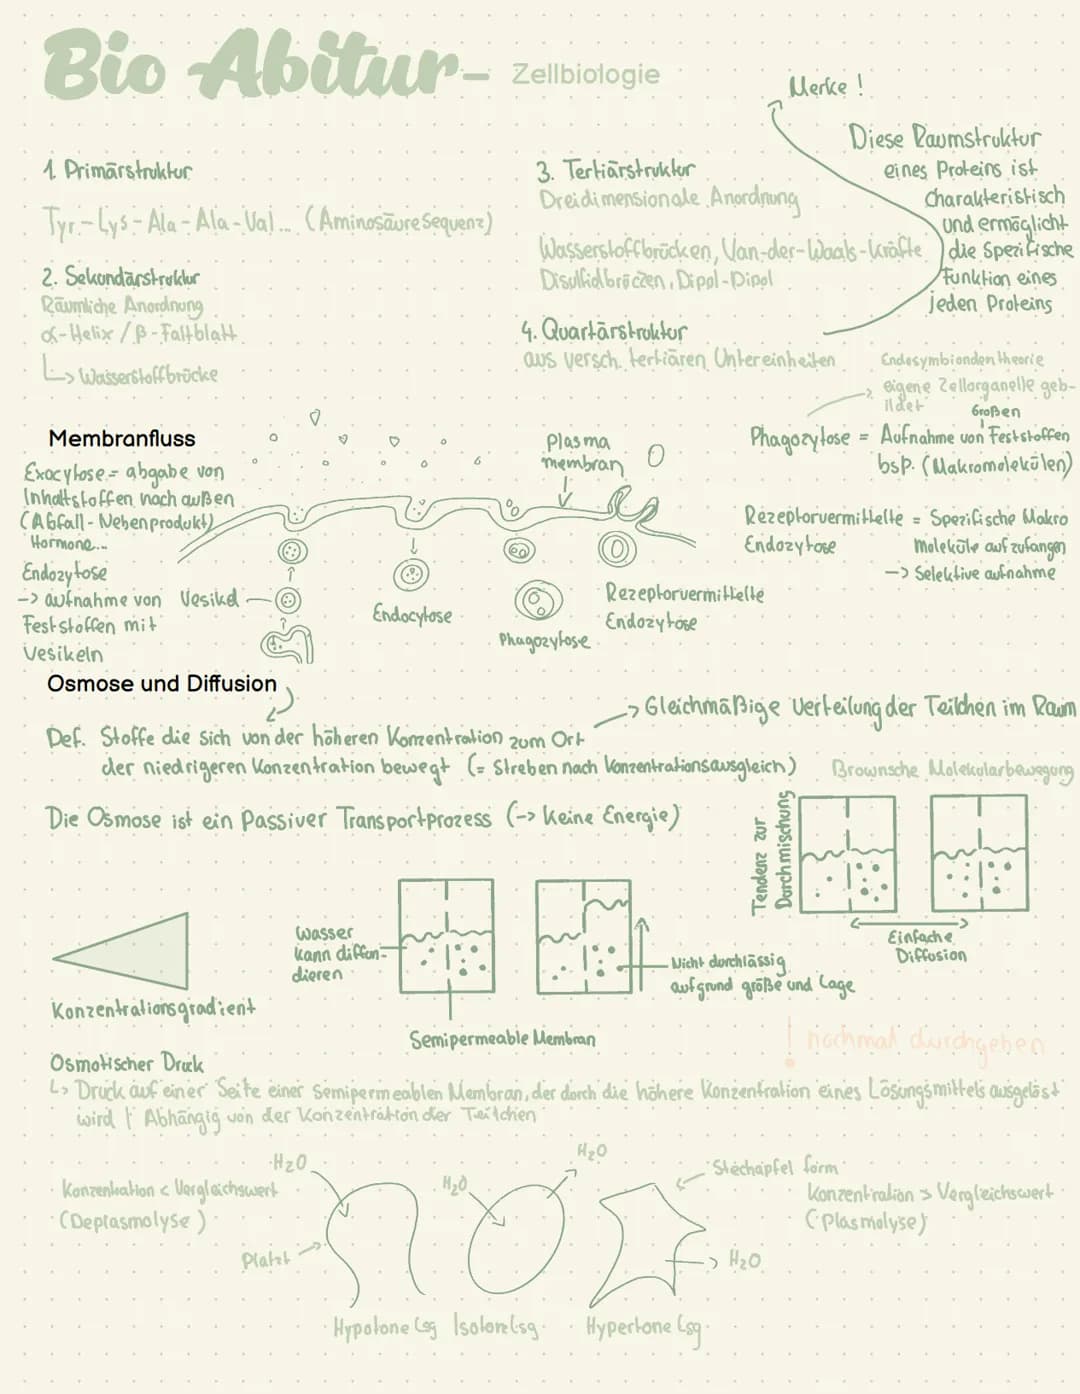 Bio Abitur – Zellbiologie
Merke !
Diese Raumstruktur
eines Proteins ist
charakteristisch
und ermöglicht
die spezifische
Funktion eines
jeden Proteins
1. Primärstruktur
Tyr-Lys-Ala-Ala-Val... (Aminosäuresequenz)
2. Sekundärstruktur
Räumliche Anordnung
α-Helix / β-Faltblatt
↳ Wasserstoffbrücke
3. Tertiärstruktur
Dreidimensionale Anordnung
Wasserstoffbrücken, Van-der-Waals-Kräfte
Disulfidbrücken, Dipol-Dipol
4. Quartärstruktur
aus versch. tertiären Untereinheiten
Endosymbiondentheorie
→ eigene Zellorganelle geb-
ildet
Großen
Phagozytose = Aufnahme von Feststoffen
bsp. (Makromolekülen)
Membranfluss
Exocytose = abgabe von
Inhaltstoffen nach außen
(Abfall-Nebenprodukt)
Hormone...
Endozytose
-> aufnahme von
Feststoffen mit
Vesikeln
Vesikel
Plasma
membran
Endocytose
Phagozytose
Rezeptorvermittelte
Endozytose
Rezeptorvermittelte = Spezifische Makro
Endozytose Moleküle aufzufangen
-> Selektive aufnahme
Osmose und Diffusion
→ Gleichmäßige Verteilung der Teilchen im Raum
Def. Stoffe die sich von der höheren Konzentration zum Ort
der niedrigeren Konzentration bewegt (= Streben nach Konzentrationsausgleich)
Brownsche Molekularbewegung
Die Osmose ist ein Passiver Transportprozess (-> Keine Energie)
Tendenz zur
Durchmischung
Einfache
Diffusion
Konzentrationsgradient
Wasser
kann diffun-
dieren
Semipermeable Membran
Nicht durchlässig
aufgrund größe und Lage
! nochmal durchgehen
Osmotischer Druck
↳ Druck auf einer Seite einer Semipermeablen Membran, der durch die höhere Konzentration eines Lösungsmittels ausgelöst
wird | Abhängig von der Konzentration der Teilchen
Konzentration < Vergleichswert
(Deplasmolyse)
H₂O
Platzt
H₂O
H₂O
Stechapfel form
Konzentration > Vergleichswert
(Plasmolyse)
H₂O
Hypotone Lsg
Isotone Lsg.
Hypertone Lsg.